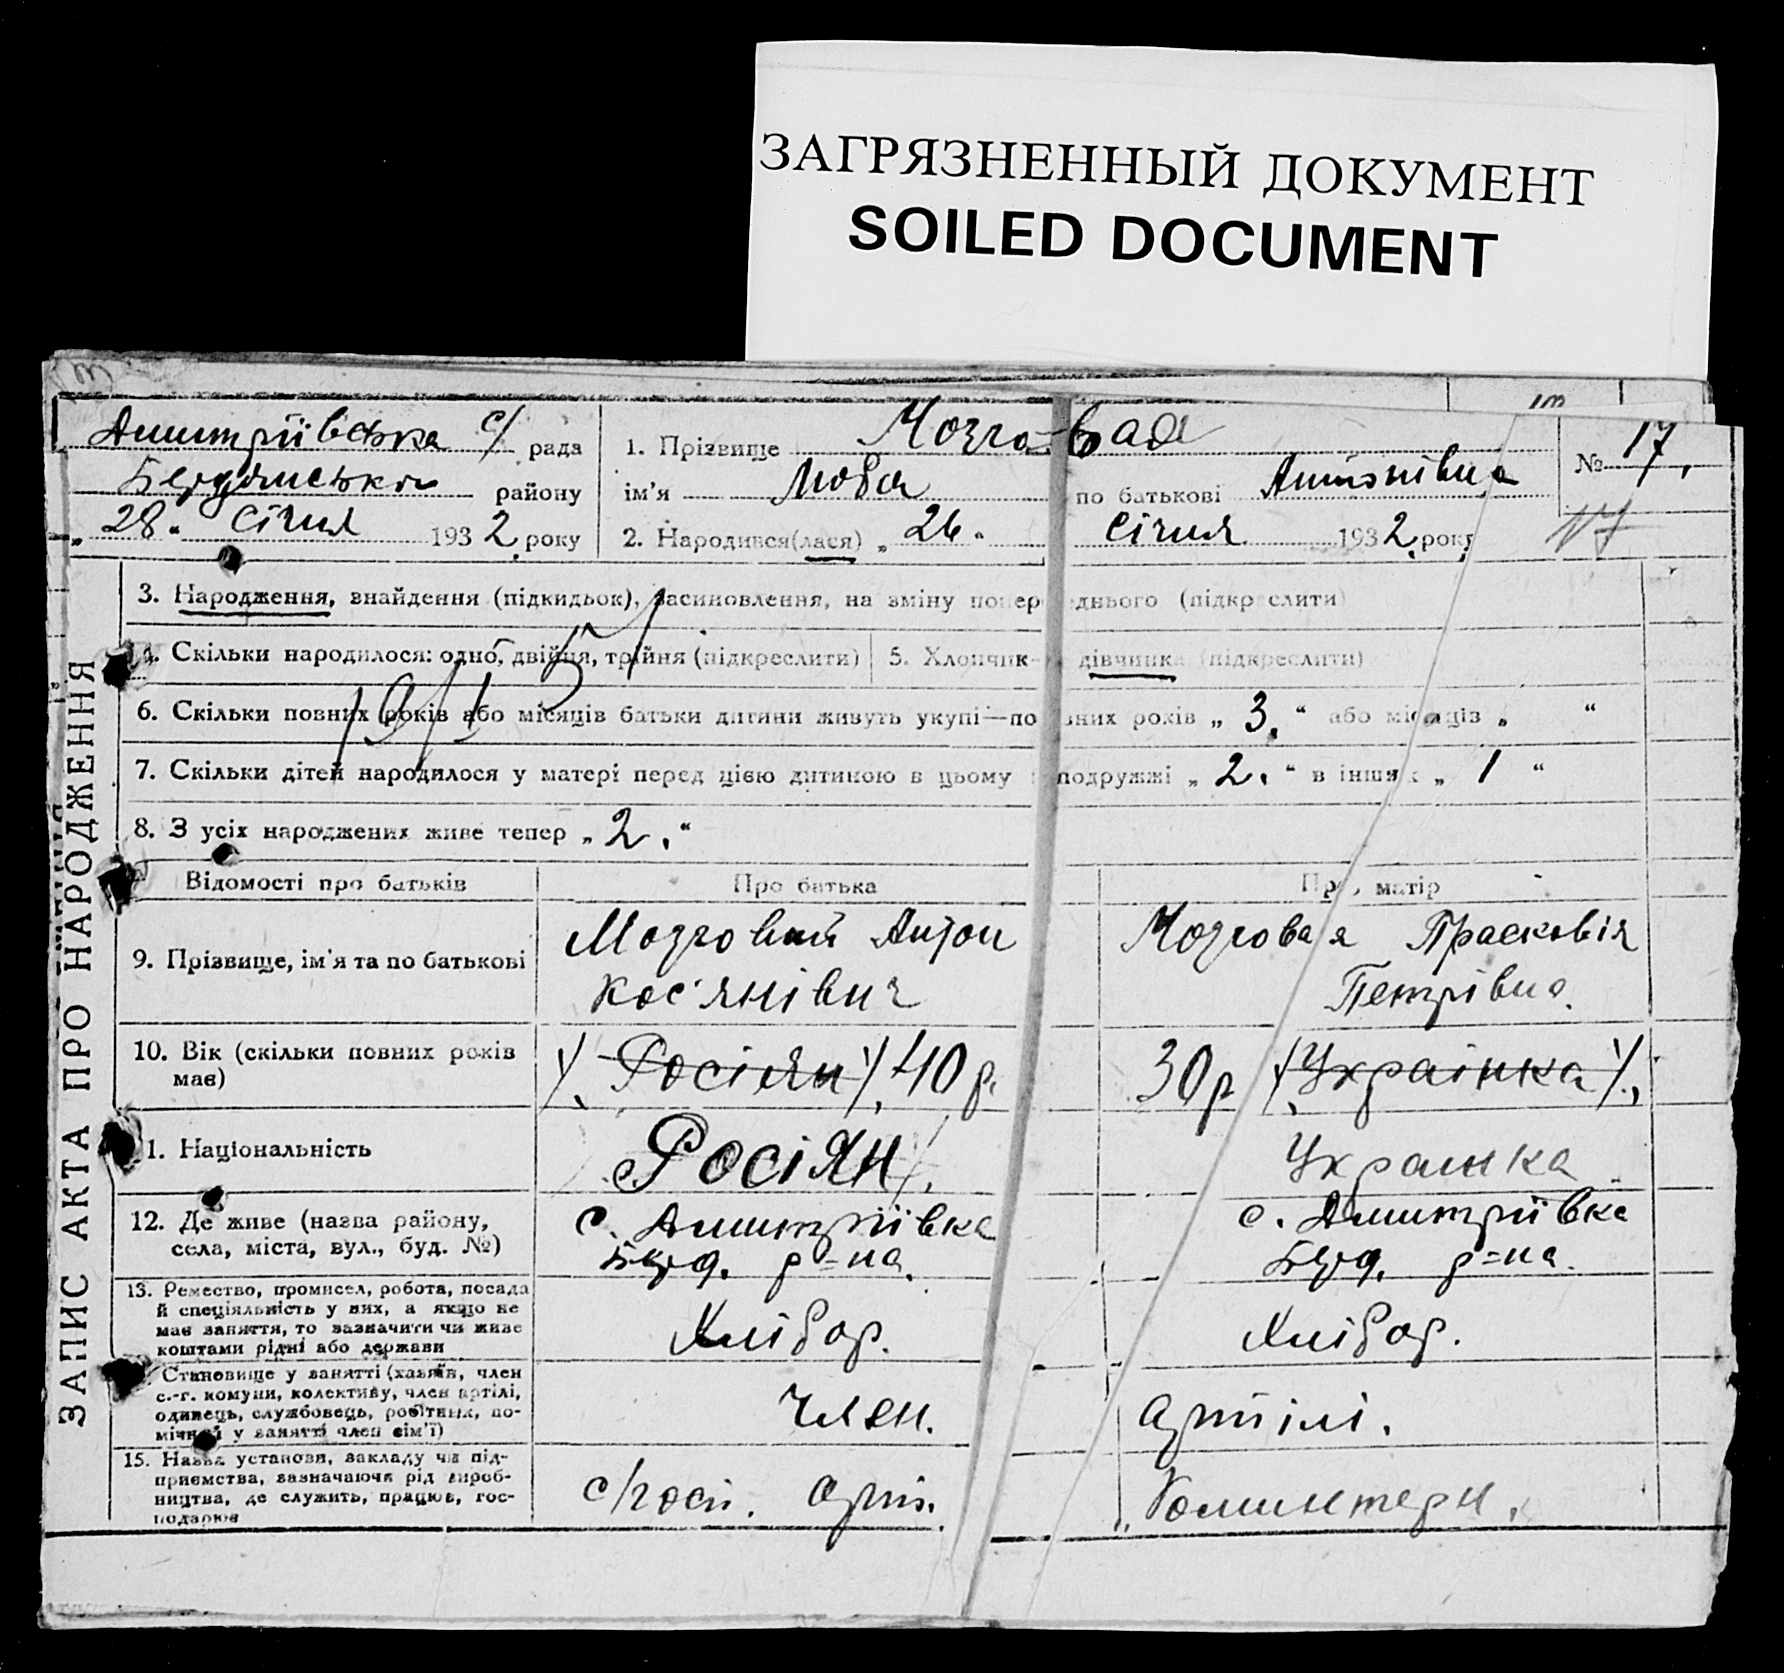 ЗАГРЯЗНЕННЫЙ ДОКУМЕНТ
SOILED DOCUMENT
ЗАПИС АКТА ПРО НАРОДЖЕННЯ
Дмитріївська с/ рада
Бердянського району
„ 28 “ Січня 1932 року
1. Прізвище Мозговая
ім'я Люба по батькові Антонівна
2. Народився(лася) „ 26 “ Січня 1932 року
№ 17.
17
3. Народження, знайдення (підкидьок), засиновлення, на зміну попереднього (підкреслити)
4. Скільки народилося: одно, двійня, трійня (підкреслити)
5. Хлопчик— дівчинка (підкреслити)
6. Скільки повних років або місяців батьки дитини живуть укупі—повних років „ 3. “ або місяців „ “
7. Скільки дітей народилося у матері перед цією дитиною в цьому подружжі „ 2. “ в інших „ 1 “
8. З усіх народжених живе тепер „ 2. “
Відомості про батьків Про батька Про матір
9. Прізвище, ім'я та по батькові
Мозговий Антон
Кос'янівич
Мозговая Прасковія
Петрівна.
10. Вік (скільки повних років
має)
Росіян 40 р.
30 р Українка
11. Національність Росіян Украинка
12. Де живе (назва району,
села, міста, вул., буд. №)
с. Дмитріївка
Берд. р=на.
с. Дмитріївка
Берд. р=на.
13. Ремество, промисел, робота, посада
й спеціяльність у них, а якщо не
має заняття, то зазначити чи живе
коштами рідні або держави
Хлібор. Хлібор.
Становище у занятті (хазяїн, член
с.-г. комуни, колективу, член артілі,
одинець, службовець, робітник, по-
мічний у занятті член сім'ї)
Член. артілі.
15. Назва установи, закладу чи під-
приємства, зазначаючи рід вироб-
ництва, де служить, працює, гос-
подарює
с/госп. арт. „Коминтерн.